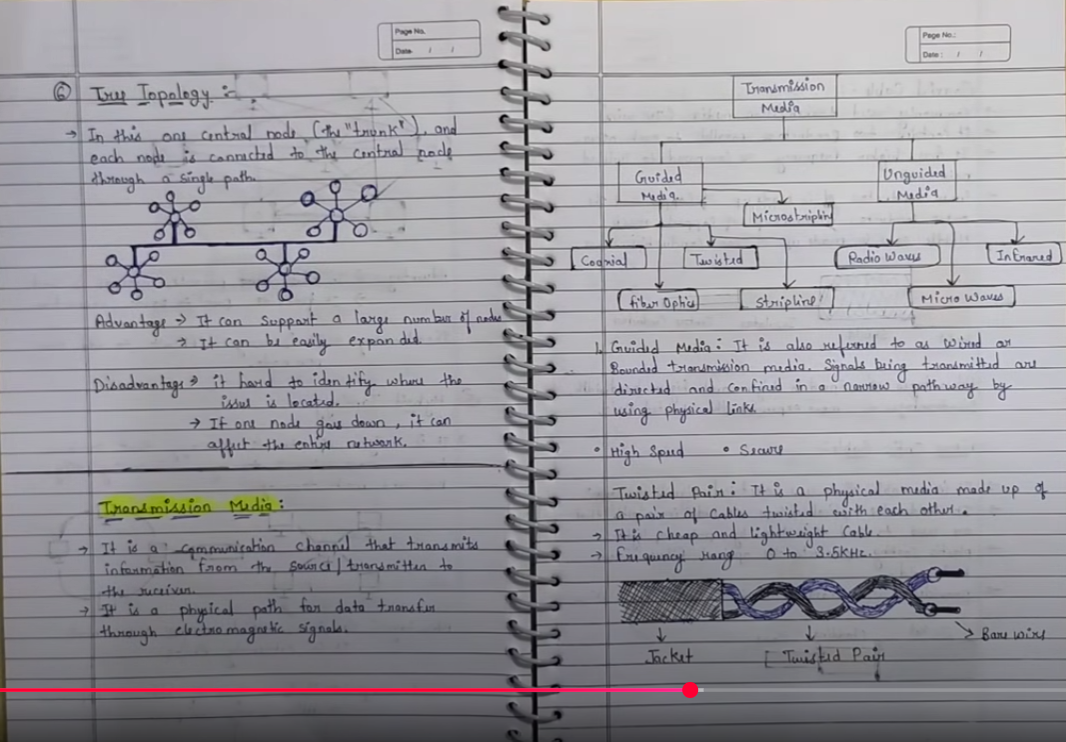 Page No.
Date / /
⑥ Tree Topology :-
→ In this one central node (the "trunk"), and
each node is connected to the central node
through a single path.
Advantage → It can support a large number of nodes
→ It can be easily expanded.
Disadvantage → it hard to identify where the
issue is located.
→ If one node goes down, it can
affect the entire network.
Transmission Media :
→ It is a communication channel that transmits
information from the source/transmitter to
the receiver.
→ It is a physical path for data transfer
through electromagnetic signals.
Page No.:
Date : / /
Transmission
Media
Guided
Media
Unguided
Media
Microstripline
Coaxial
Twisted
Radio Waves
Infrared
Fiber Optics
Stripline
Micro Waves
1. Guided Media : It is also referred to as Wired or
Bounded transmission media. Signals being transmitted are
directed and confined in a narrow pathway by
using physical links.
• High Speed • Secure
Twisted Pair : It is a physical media made up of
a pair of cables twisted with each other.
→ It is cheap and lightweight cable.
→ Frequency rang 0 to 3.5KHz.
Bare wire
Jacket
Twisted Pair